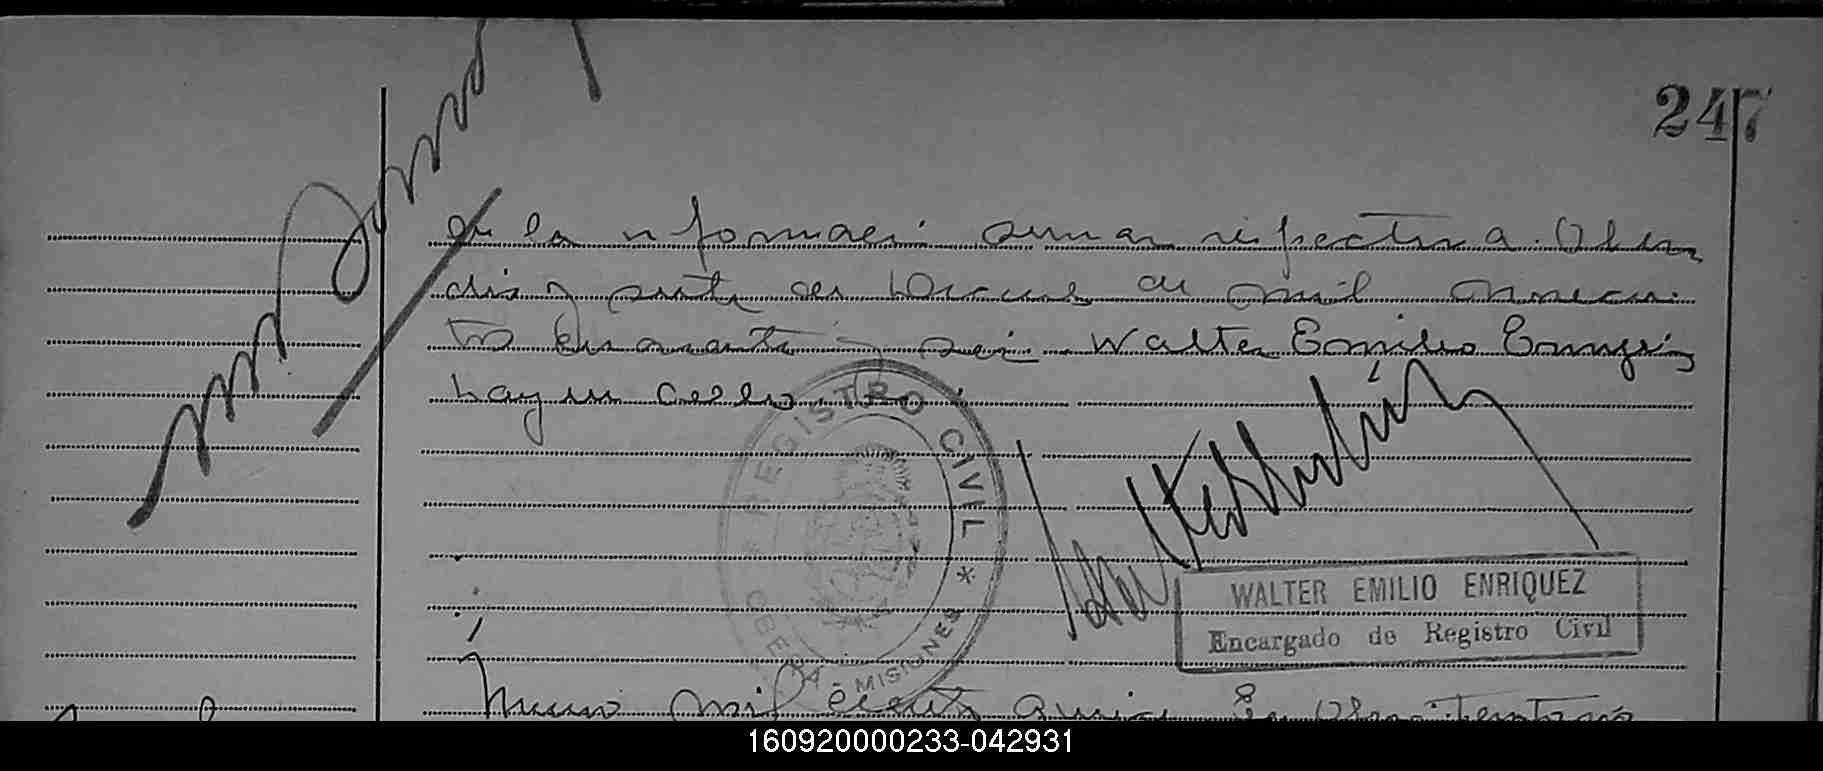 247
de la informaci sumar respectiva. Obera
dies y siete de Diciembre de mil novecien
tos cuarenta y seis Walter Emilio Enriquez
hay un sello
REGISTRO CIVIL * OBERA MISIONES *
WALTER EMILIO ENRIQUEZ
Encargado de Registro Civil
Numero mil ciento quince En Obera Territorio
160920000233-042931